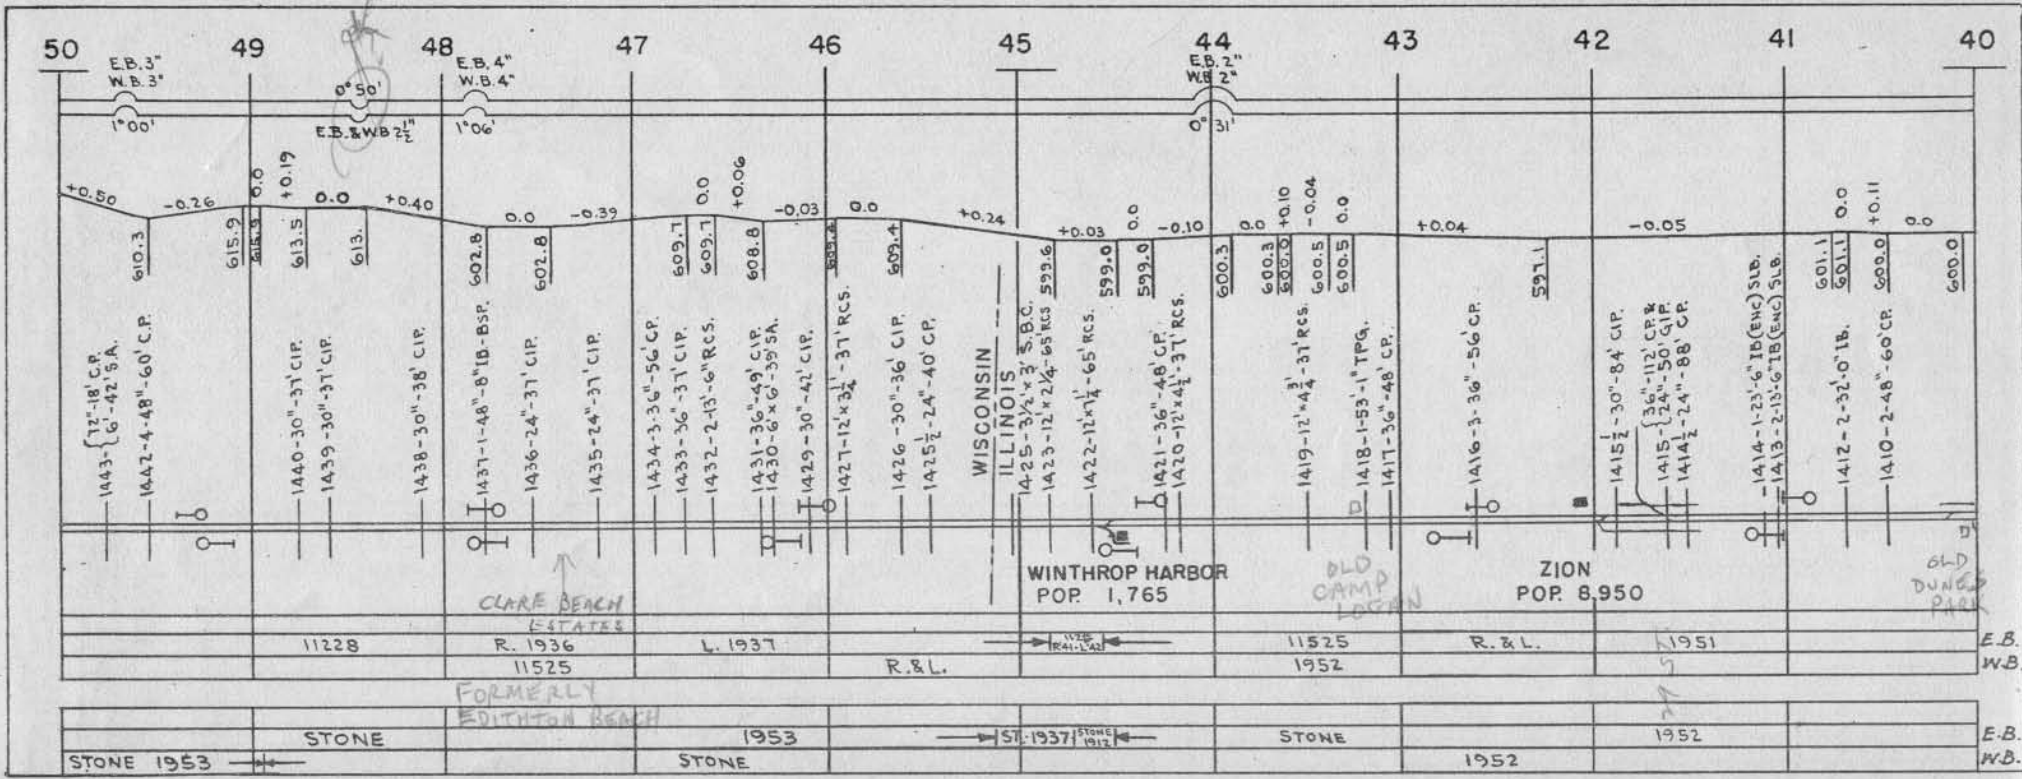 50 49 48 47 46 45 44 43 42 41 40
E.B. 3"
W.B. 3"
1°00'
0°50'
E.B.&W.B 2½"
E.B. 4"
W.B. 4"
1°06'
E.B. 2"
W.B. 2"
0°31'
+0.50 -0.26 0.0 +0.19 0.0 +0.40 0.0 -0.39 0.0 +0.06 -0.03 0.0 +0.24 +0.03 0.0 -0.10 0.0 +0.10 -0.04 0.0 +0.04 -0.05 0.0 +0.11 0.0
610.3 615.9 615.9 613.5 613. 602.8 602.8 609.7 609.7 608.8 609.4 599.6 599.0 599.0 600.3 600.3 600.0 600.5 600.5 597.1 601.1 601.1 600.0 600.0
1443-{72"-18' C.P.
6'-42' S.A.
1442-4-48"-60' C.P.
1440-30"-37' CIP.
1439-30"-37' CIP.
1438-30"-38' CIP.
1437-1-48"-8" IB.-BSP.
1436-24"-37' CIP.
1435-24"-37' CIP.
1434-3-36"-56' CP.
1433-36"-37' CIP.
1432-2-13'-6" RCS.
1431-36"-49' CIP.
1430-6'x6'-39' SA.
1429-30"-42' CIP.
1427-12'x3¼'-37' RCS.
1426-30"-36' CIP
1425½-24"-40' CP.
WISCONSIN
ILLINOIS
1425-3½'x3' S.B.C.
1423-12'x2¼'-65' RCS
1422-12'x7¼'-65' RCS.
1421-36"-48' C.P.
1420-12'x4½'-37' RCS.
1419-12'x4¾'-37' RCS.
1418-1-53'-1" TPG.
1417-36"-48' CP.
1416-3-36"-56' C.P.
1415½-30"-84' CIP.
1415-{36"-112' C.P. &
24"-50' GIP.
1414½-24"-88' C.P.
1414-1-23'-6" IB (ENC) SLB.
1413-2-13'-6" IB (ENC) SLB.
1412-2-32'-0" IB.
1410-2-48"-60' CP.
WINTHROP HARBOR
POP. 1,765
ZION
POP. 8,950
CLARE BEACH
ESTATES
OLD
CAMP
LOGAN
OLD
DUNES
PARK
11228 R. 1936 L. 1937 R41-L'42 11525 R.&L. 1951 E.B.
11525 R.&L. 1952 W.B.
FORMERLY
EDITHTON BEACH
STONE 1953 ST.-1937 STONE 1912 STONE 1952 E.B.
STONE 1953 STONE 1952 W.B.